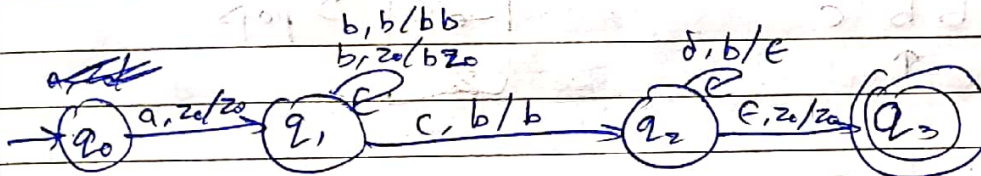 b, b/bb
b, z₀/bz₀
d, b/ϵ
q₀
a, z₀/z₀
q₁
c, b/b
q₂
ϵ, z₀/z₀
q₃